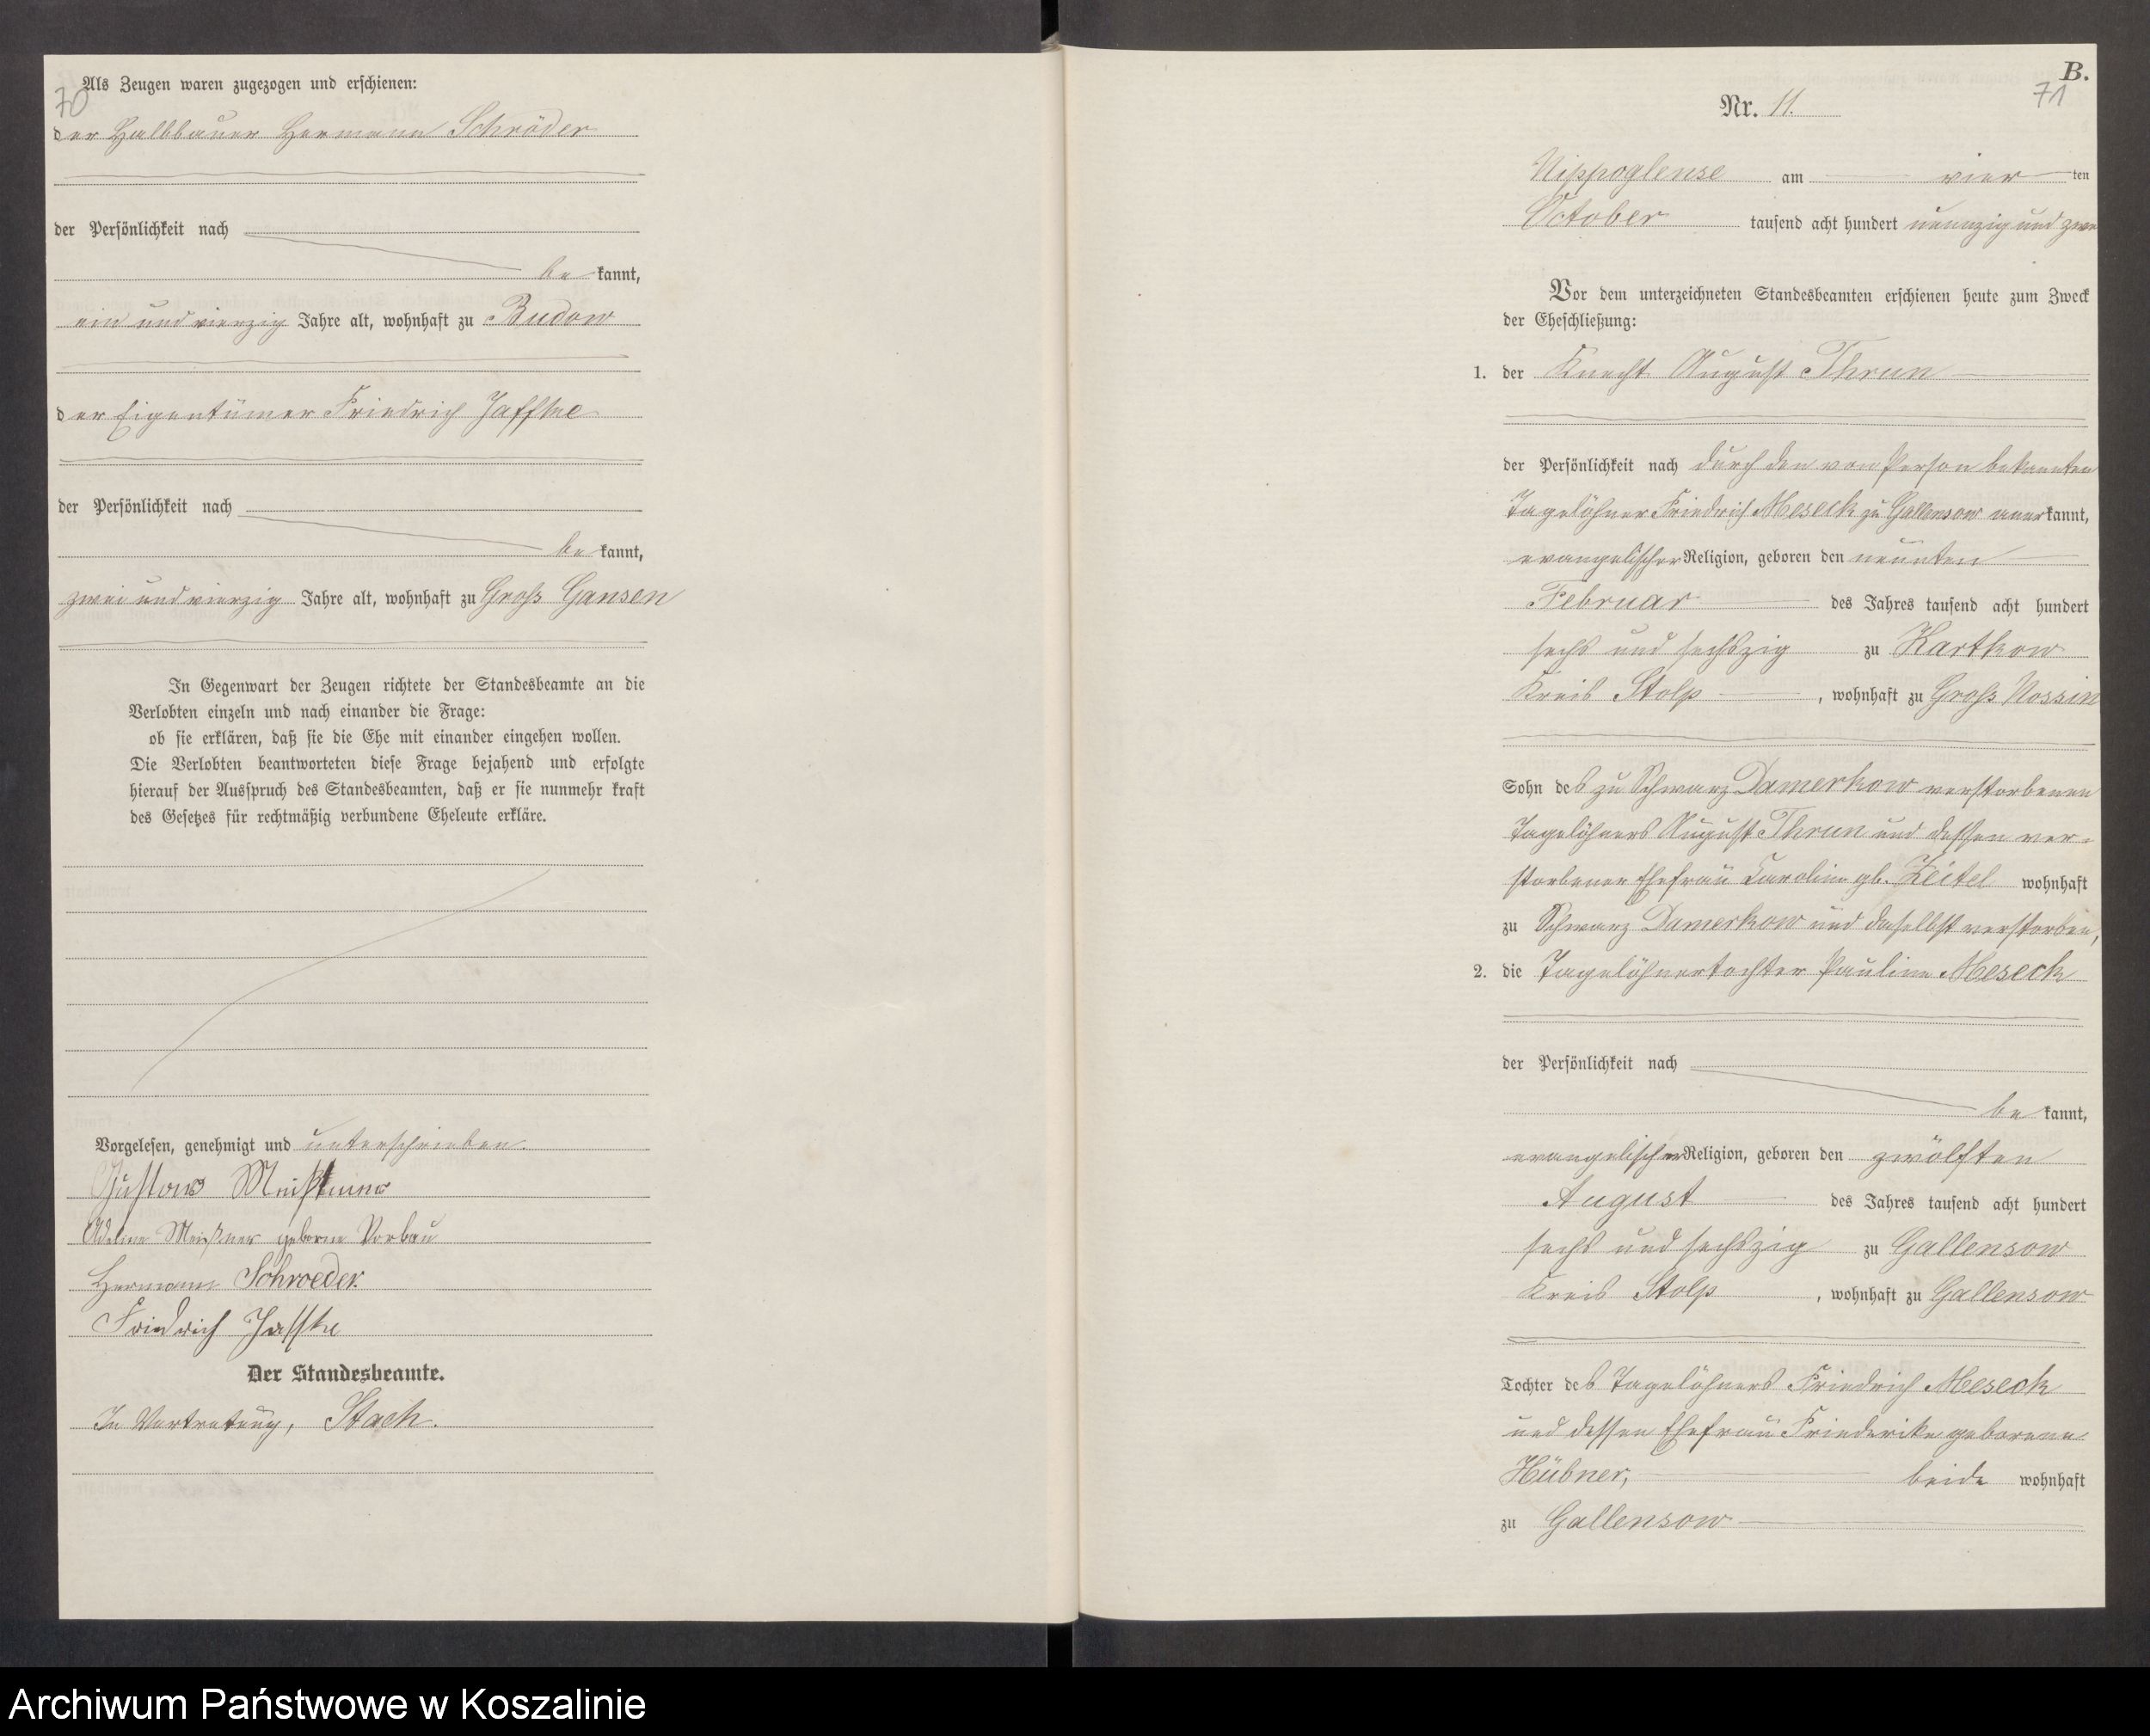 70
Als Zeugen waren zugezogen und erschienen:
der Halbbauer Hermann Schröder
der Persönlichkeit nach
be kannt,
ein und vierzig Jahre alt, wohnhaft zu Budow
der Eigentümer Friedrich Jaffke
der Persönlichkeit nach
be kannt,
zwei und vierzig Jahre alt, wohnhaft zu Groß Gansen
In Gegenwart der Zeugen richtete der Standesbeamte an die
Verlobten einzeln und nach einander die Frage:
ob sie erklären, daß sie die Ehe mit einander eingehen wollen.
Die Verlobten beantworteten diese Frage bejahend und erfolgte
hierauf der Ausspruch des Standesbeamten, daß er sie nunmehr kraft
des Gesetzes für rechtmäßig verbundene Eheleute erkläre.
Vorgelesen, genehmigt und unterschrieben.
Gustav Meißner
Adeline Meißner geborne Vorbau
Hermann Schroeder.
Friedrich Jaffke
Der Standesbeamte.
In Vertretung, Stach.
B.
71
Nr. 11.
Nippoglense am vier ten
October tausend acht hundert neunzig und zwei
Vor dem unterzeichneten Standesbeamten erschienen heute zum Zweck
der Eheschließung:
1. der Knecht August Thrun
der Persönlichkeit nach durch den von Person bekannten
Tagelöhner Friedrich Meseck zu Gallensow aner kannt,
evangelischer Religion, geboren den neunten
Februar des Jahres tausend acht hundert
sechs und sechszig zu Kartkow
Kreis Stolp, wohnhaft zu Groß Nossin
Sohn des zu Schwarz Damerkow verstorbenen
Tagelöhners August Thrun und dessen ver-
storbener Ehefrau Karoline gb. Zeitel wohnhaft
zu Schwarz Damerkow und daselbst verstorben,
2. die Tagelöhnertochter Pauline Meseck
der Persönlichkeit nach
be kannt,
evangelischer Religion, geboren den zwölften
August des Jahres tausend acht hundert
sechs und sechszig zu Gallensow
Kreis Stolp, wohnhaft zu Gallensow
Tochter des Tagelöhners Friedrich Meseck
und dessen Ehefrau Friederike geborene
Hübner, beide wohnhaft
zu Gallensow
Archiwum Państwowe w Koszalinie